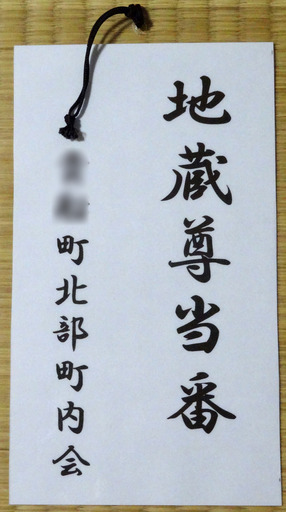 地蔵尊当番
町北部町内会